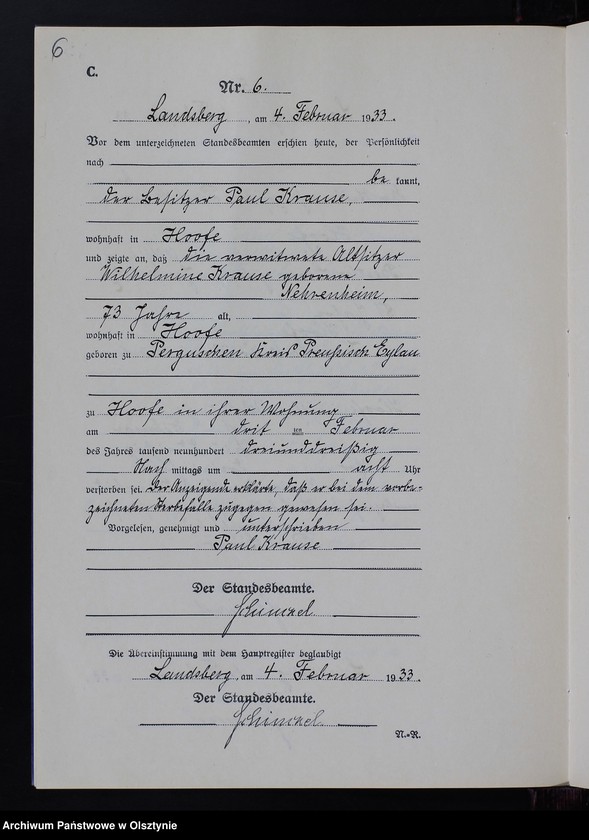 6
C.
Nr. 6.
Landsberg, am 4. Februar 1933.
Vor dem unterzeichneten Standesbeamten erschien heute, der Persönlichkeit
nach
be kannt,
der Besitzer Paul Krause,
wohnhaft in Hoofe
und zeigte an, daß die verwitwete Altsitzer
Wilhelmine Krause geborene
Nehrenheim,
73 Jahre alt,
wohnhaft in Hoofe
geboren zu Perguschen Kreis Preußisch Eylau
zu Hoofe in ihrer Wohnung
am drit en Februar
des Jahres tausend neunhundert dreiunddreißig
Nach mittags um acht Uhr
verstorben sei. Der Anzeigende erklärte, daß er bei dem vorbe-
zeichneten Sterbefalle zugegen gewesen sei.
Vorgelesen, genehmigt und unterschrieben
Paul Krause
Der Standesbeamte.
Schinckel
Die Übereinstimmung mit dem Hauptregister beglaubigt
Landsberg, am 4. Februar 1933.
Der Standesbeamte.
Schinckel
N.=R.
Archiwum Państwowe w Olsztynie